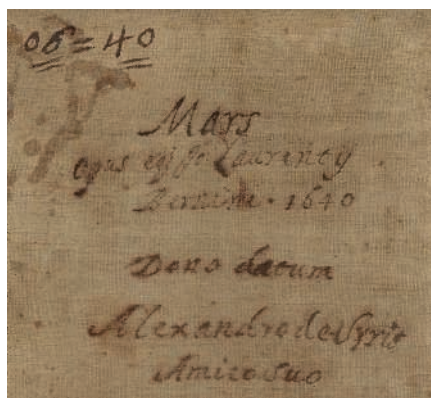 06=40
Mars
opus Laurenty
Bernini. 1640
Dono datum
Alexandro de Syrie
Amico suo